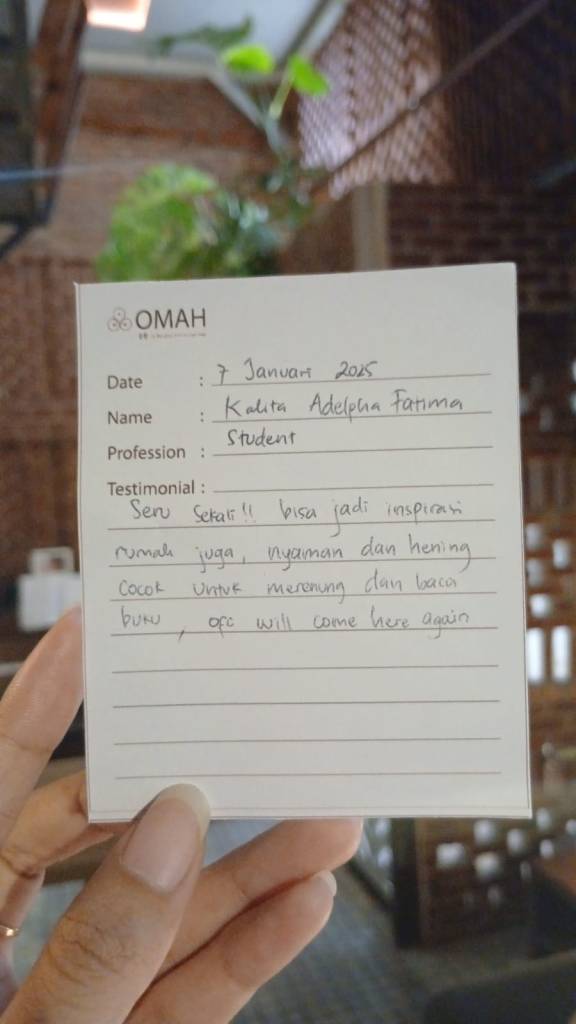 OMAH
Date : 7 Januari 2025
Name : Kalita Adelpha Fatima
Profession : Student
Testimonial :
Seru sekali!! bisa jadi inspirasi
rumah juga, nyaman dan hening
cocok untuk merenung dan baca
buku, ofc will come here again